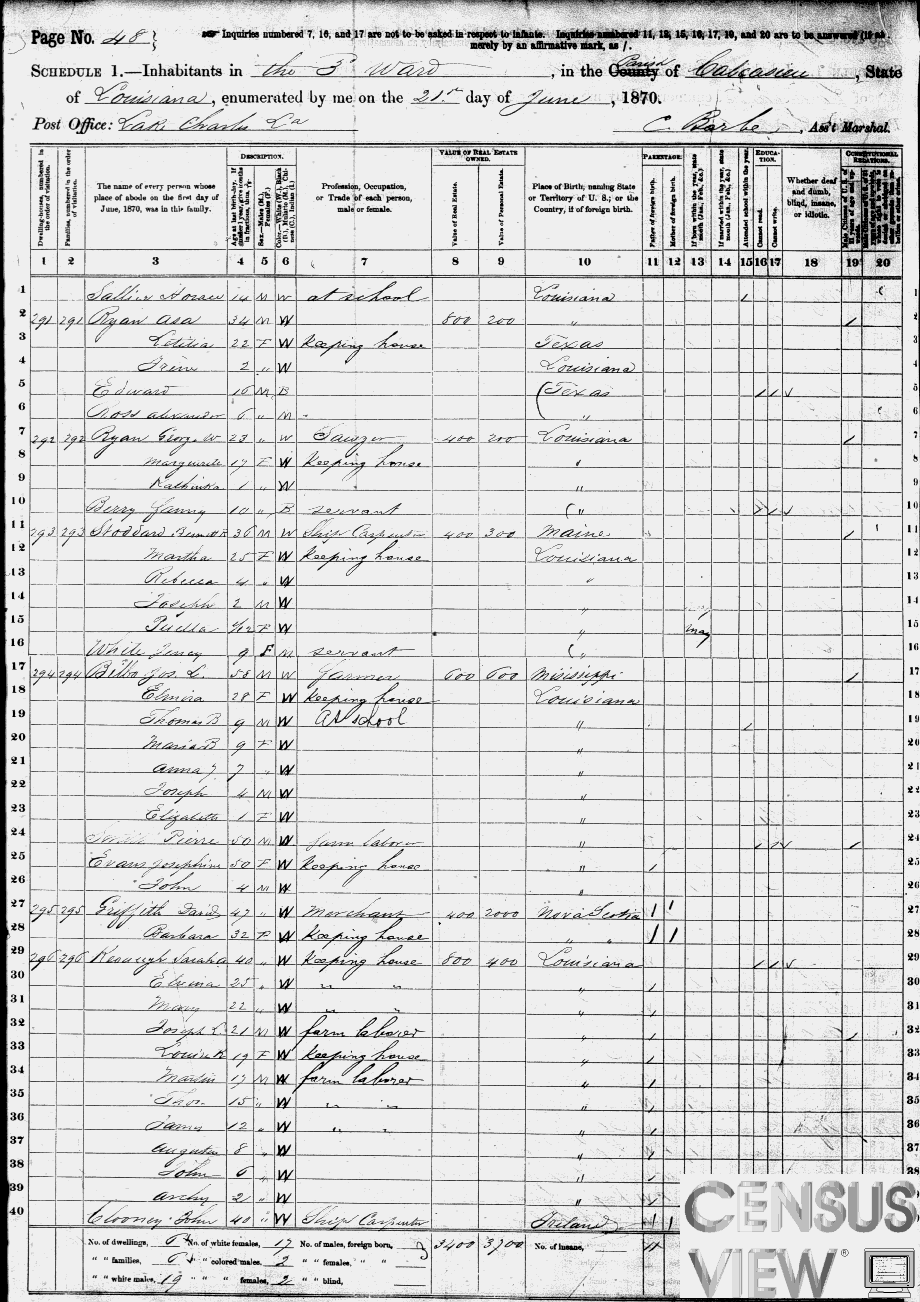 Page No. 48
☞ Inquiries numbered 7, 16, and 17 are not to be asked in respect to infants. Inquiries numbered 11, 12, 15, 16, 17, 19, and 20 are to be answered (if at
merely by an affirmative mark, as /.
SCHEDULE 1.—Inhabitants in the 3rd Ward, in the County Parish of Calcasieu, State
of Louisiana, enumerated by me on the 21st day of June, 1870.
Post Office: Lake Charles La
C. Barbe, Ass't Marshal.
DESCRIPTION. VALUE OF REAL ESTATE OWNED. PARENTAGE. EDUCATION. CONSTITUTIONAL RELATIONS.
Dwelling-houses, numbered in the order of visitation. Families, numbered in the order of visitation. The name of every person whose place of abode on the first day of June, 1870, was in this family. Profession, Occupation, or Trade of each person, male or female. Value of Real Estate. Value of Personal Estate. Place of Birth, naming State or Territory of U. S.; or the Country, if of foreign birth. Father of foreign birth. Mother of foreign birth. Attended school within the year. Cannot read. Cannot write. Whether deaf and dumb, blind, insane, or idiotic.
1 2 3 4 5 6 7 8 9 10 11 12 13 14 15 16 17 18 19 20
1 Sallier Horace 14 M W at school Louisiana / 1
2 291 291 Ryan Asa 34 M W 800 200 " / 2
3 Letitia 22 F W Keeping house Texas 3
4 Irene 2 " W Louisiana 4
5 Edward 16 M B Texas / / 5
6 Ross Alexander 6 " M " 6
7 292 292 Ryan George W 23 " W Sawyer 400 200 Louisiana / 7
8 Marguerite 17 F W Keeping house " 8
9 Kathinka 1 " W " 9
10 Berry Fanny 10 " B servant " 10
11 293 293 Stoddard 36 M W Ship Carpenter 400 300 Maine / 11
12 Martha 25 F W Keeping house Louisiana 12
13 Rebecca 4 " W " 13
14 Joseph 2 M W " 14
15 F W " May 15
16 White Jenny 9 F M servant " 16
17 294 294 Bilbo Jos. L. 58 M W Farmer 600 600 Mississippi / 17
18 Elmira 28 F W Keeping house Louisiana 18
19 Thomas B 9 M W At school " / 19
20 Maria B 9 F W " 20
21 Anna J 7 " W " 21
22 Joseph 4 M W " 22
23 Elizabeth 1 F W " 23
24 Pierre 50 M W farm laborer " / 24
25 Evans Josephine 50 F W Keeping house " / 25
26 John 4 M W " 26
27 295 295 Griffith David 47 " W Merchant 400 2000 Nova Scotia / / 27
28 Barbara 32 F W Keeping house " " / / 28
29 296 296 Sarah A 40 " W Keeping house 800 400 Louisiana / / 29
30 Elmina 25 " W " " " / 30
31 Mary 22 " W " " " / 31
32 Joseph L. 21 M W farm laborer " / / 32
33 Louise 19 F W Keeping house " / 33
34 Martin 17 M W farm laborer " / 34
35 Thos. 15 " W " " " / 35
36 James 12 " W " " " / 36
37 Augustus 8 " W " / 37
38 John 6 " W " / 38
39 Archy 2 " W " /
40 Clooney John 40 " W Ship Carpenter Ireland / /
No. of dwellings, 6 No. of white females, 17 No. of males, foreign born, 3400 3700 No. of insane,
" " families, 6 " " colored males, 2 " " females, " "
" " white males, 19 " " " females, 2 " " blind,
CENSUS
VIEW®